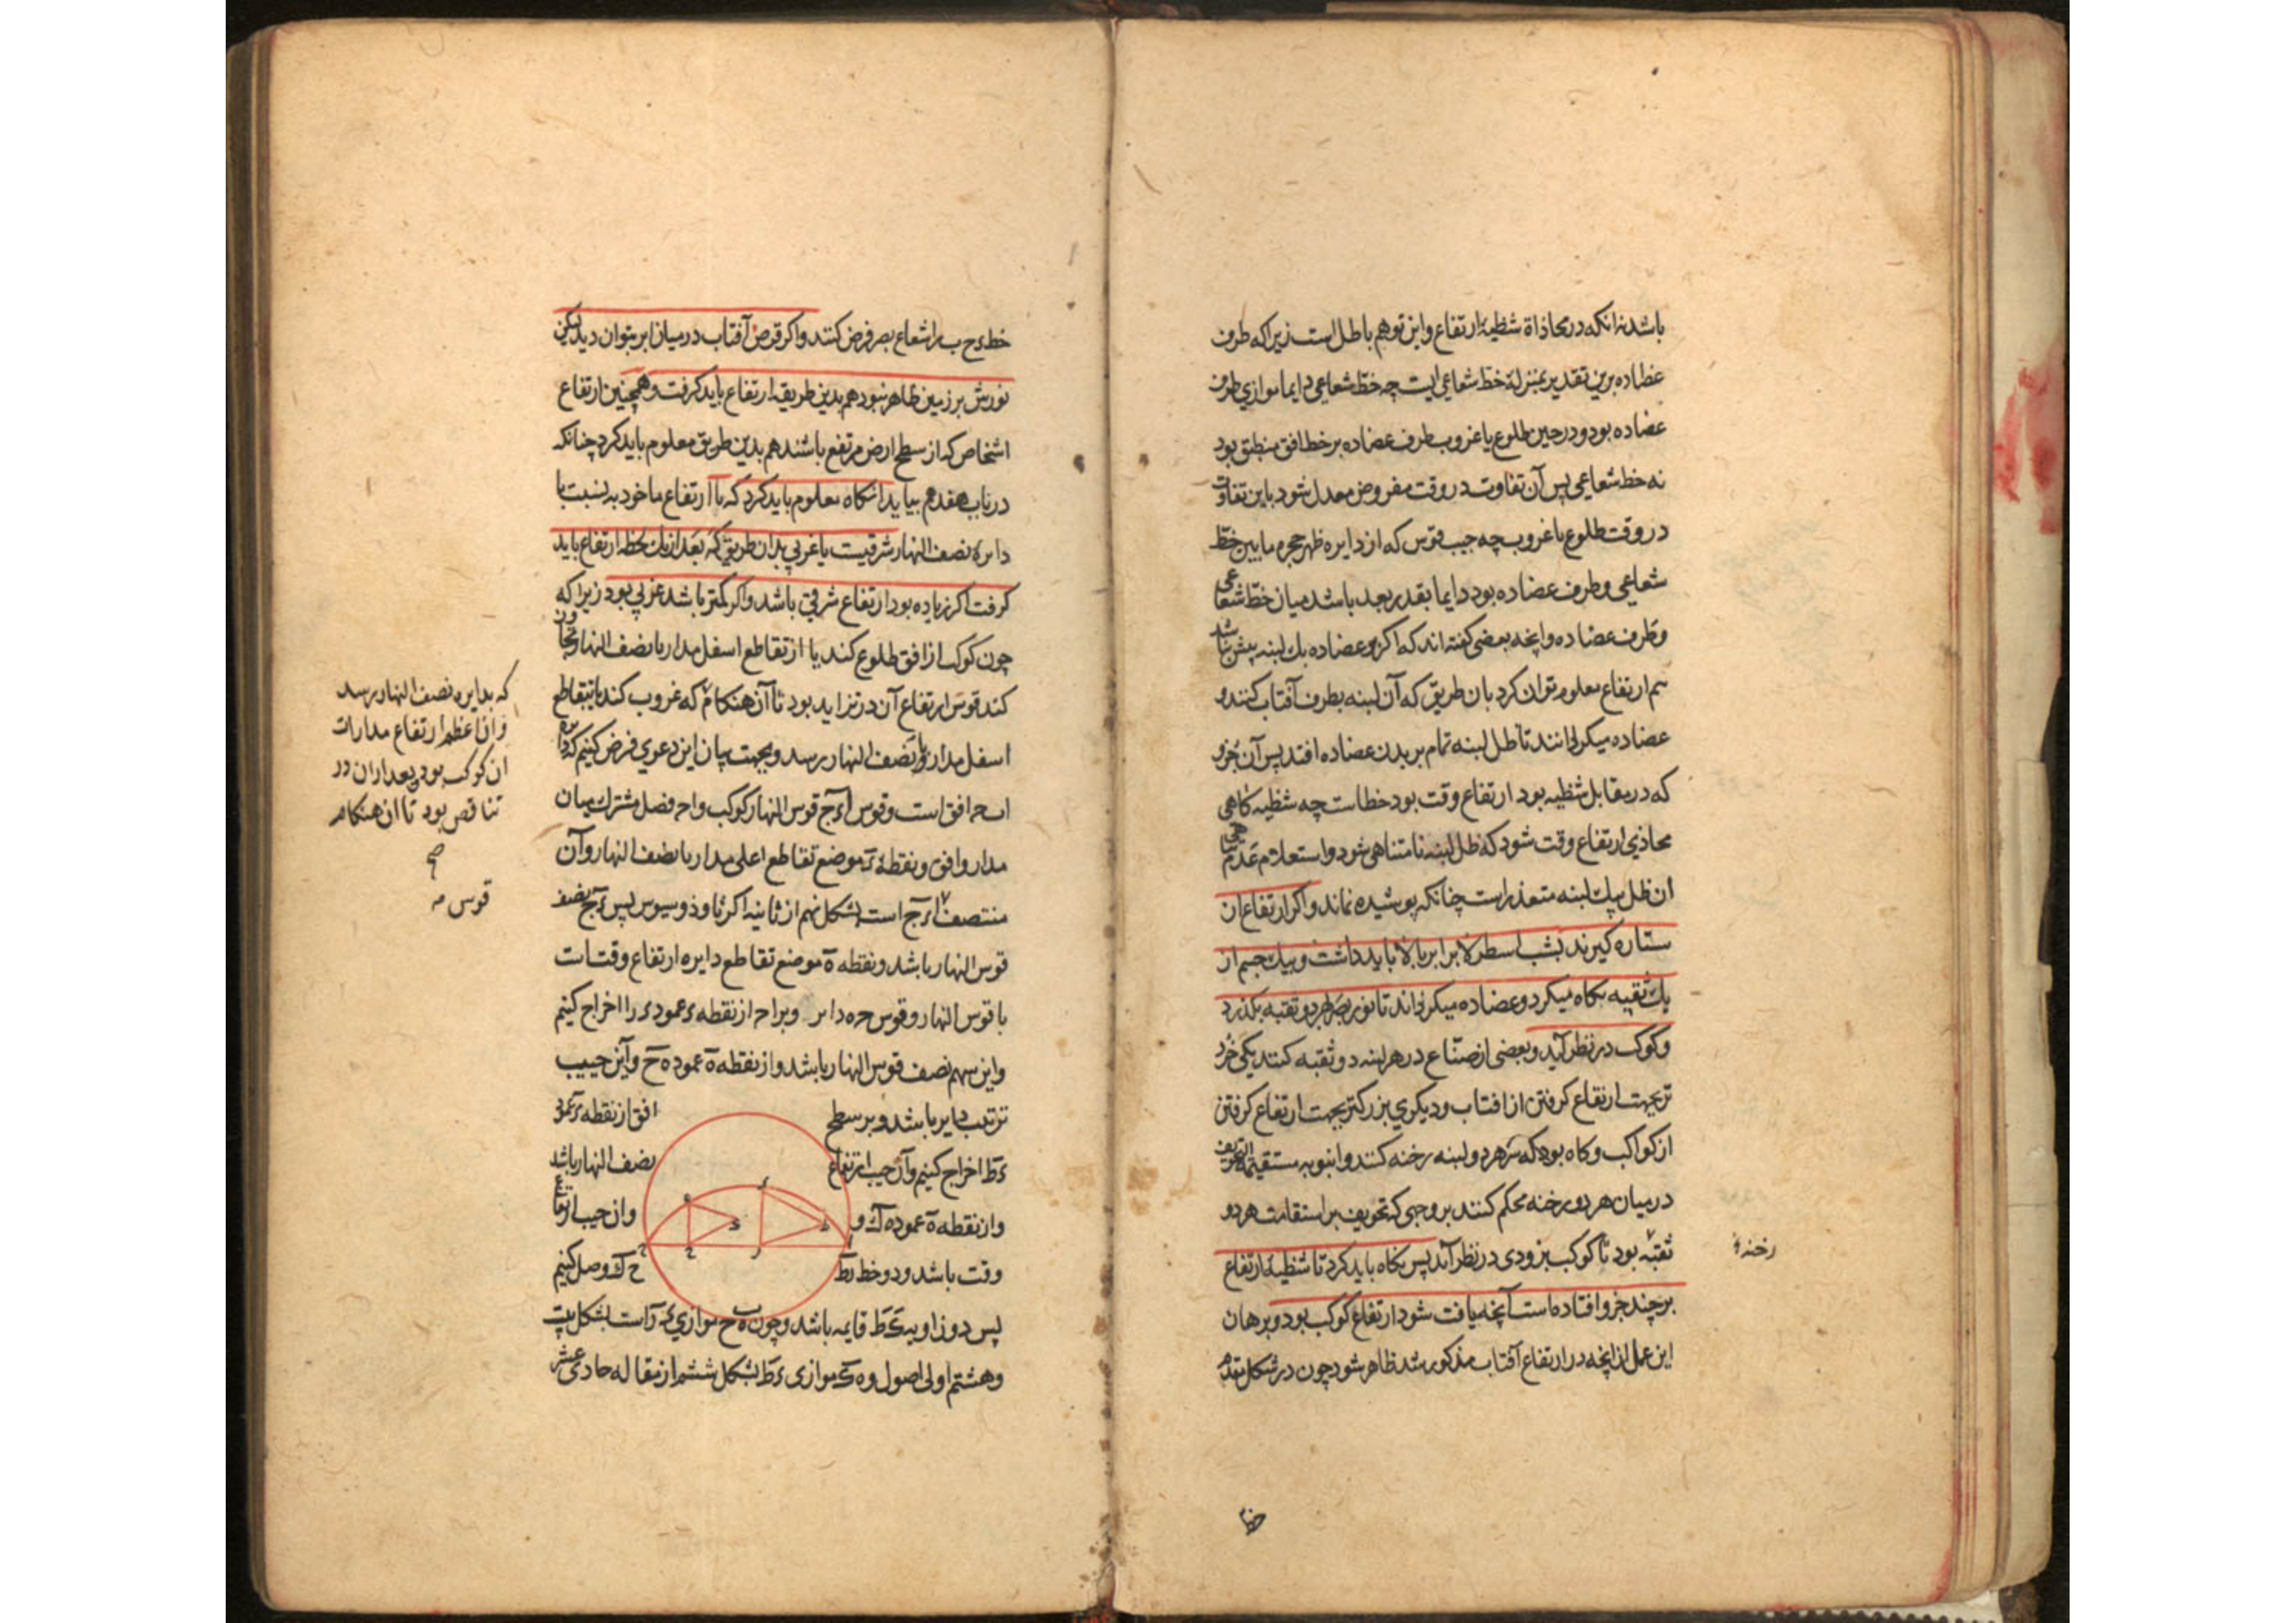 باشد نه انکه در محاذاة شظیهٔ ارتفاع و این توهم باطل است زیرا که طرف
عضاده برین تقدیر بمنزلهٔ خط شعاعی است چه خط شعاعی دایما موازی طرف
عضاده بود و در حین طلوع یا غروب طرف عضاده بر خط افق منطبق بود
نه خط شعاعی پس آن تفاوت در وقت مفروض معدل شود باین تفاوت
در وقت طلوع یا غروب چه جیب قوس که از دایره ظهر حجره ما بین خط
شعاعی و طرف عضاده بود دایما بقدر بعد باشد میان خط شعاعی
و طرف عضاده و انچه بعضی کفته اند که اکر بر عضاده یك لبنه بیش نباشد
هم ارتفاع معلوم توان کرد بان طریق که آن لبنه بطرف آفتاب کنند و
عضاده میکردانند تا ظل لبنه تمام بر بدن عضاده افتد پس آن جزو
که در مقابل شظیه بود ارتفاع وقت بود خطاست چه شظیه کاهی
محاذی ارتفاع وقت شود که ظل لبنه نامتناهی شود و استعلام عدم تناهی
ان ظل بیك لبنه متعذر است چنانکه پوشیده نماند و اکر ارتفاع ان
ستاره کیرند بشب اسطرلاب را برابر بالا باید داشت و بیك چشم از
یك ثقبه نکاه میکرد و عضاده میکرداند تا نور بصر بهر دو ثقبه بکذرد
و کوکب در نظر آید و بعضی از صناع در هر لبنه دو ثقبه کنند یکی خرد
تر بجهت ارتفاع کرفتن از افتاب و دیکری بزرکتر بجهت ارتفاع کرفتن
از کواکب و کاه بود که سر هر دو لبنه رخنه کنند و انبوبه مستقیمة التجویف
در میان هر دو رخنه محکم کنند بر وجهی که تجویف بر استقامت هر دو
ثقبه بود تا کوکب بزودی در نظر آید پس نکاه باید کرد تا شظیهٔ ارتفاع
رخنه
بر چند جزو افتاده است آنچه یافت شود ارتفاع کوکب بود و برهان
این عمل از انچه در ارتفاع آفتاب مذکور شد ظاهر شود چون در شکل متقدم
خط
خط ء ح ب را شعاع بصر فرض کنند و اکر قرص آفتاب در میان ابر بتوان دید لیکن
نورش بر زمین ظاهر نبود هم بدین طریق ارتفاع باید کرفت و همچنین ارتفاع
اشخاص که از سطح ارض مرتفع باشند هم بدین طریق معلوم باید کرد چنانکه
در باب هفدهم بیاید انکاه معلوم باید کرد که تا ارتفاع ماخوذ به نسبت با
دایره نصف النهار شرقیست یا غربی بدان طریق که بعد از یك لحظه ارتفاع باید
کرفت اکر زیاده بود ارتفاع شرقی باشد و اکر کمتر باشد غربی بود زیرا که
چون کوکب از افق طلوع کند یا از تقاطع اسفل مدار با نصف النهار تجاوز
کند قوس ارتفاع آن در تزاید بود تا آن هنکام که غروب کند یا بتقاطع
اسفل مدار و نصف النهار رسد و بجهت بیان این دعوی فرض کنیم که دایره
ا ب ح افق است و قوس ا ء ج قوس النهار کوکب و ا ح فصل مشترك میان
مدار و افق و نقطه ء موضع تقاطع اعلی مدار با نصف النهار و آن
منتصف ا ء ج است بشکل نهم از ثانیه اکر ثاوذوسیوس پس ء ج نصف
قوس النهار باشد و نقطه ه موضع تقاطع دایره ارتفاع وقتست
با قوس النهار و قوس ح ه دایر و بر ا ح از نقطه ء عمود ء ر اخراج کنیم
و این سهم نصف قوس النهار باشد و از نقطه ه عمود ه ح و این جیب
ترتیب دایر باشد و بر سطح افق از نقطه ء عمود
ء ط اخراج کنیم و آن جیب ارتفاع نصف النهار باشد
و از نقطه ه عمود ه ك و وان جیب ارتفاع
وقت باشد و دو خط ر ط ح ك وصل کنیم
پس دو زاویه ء ط قایمه باشد و چون ه ح موازی ء ر است بشکل بیست
و هشتم اولی اصول و ه ك موازی ء ط بشکل ششم از مقاله حادی عشر
که بدایره نصف النهار رسد
وان اعظم ارتفاع مدارات
ان کوکب بود و بعد از ان در
تناقص بود تا ان هنکام
صح
قوس مه